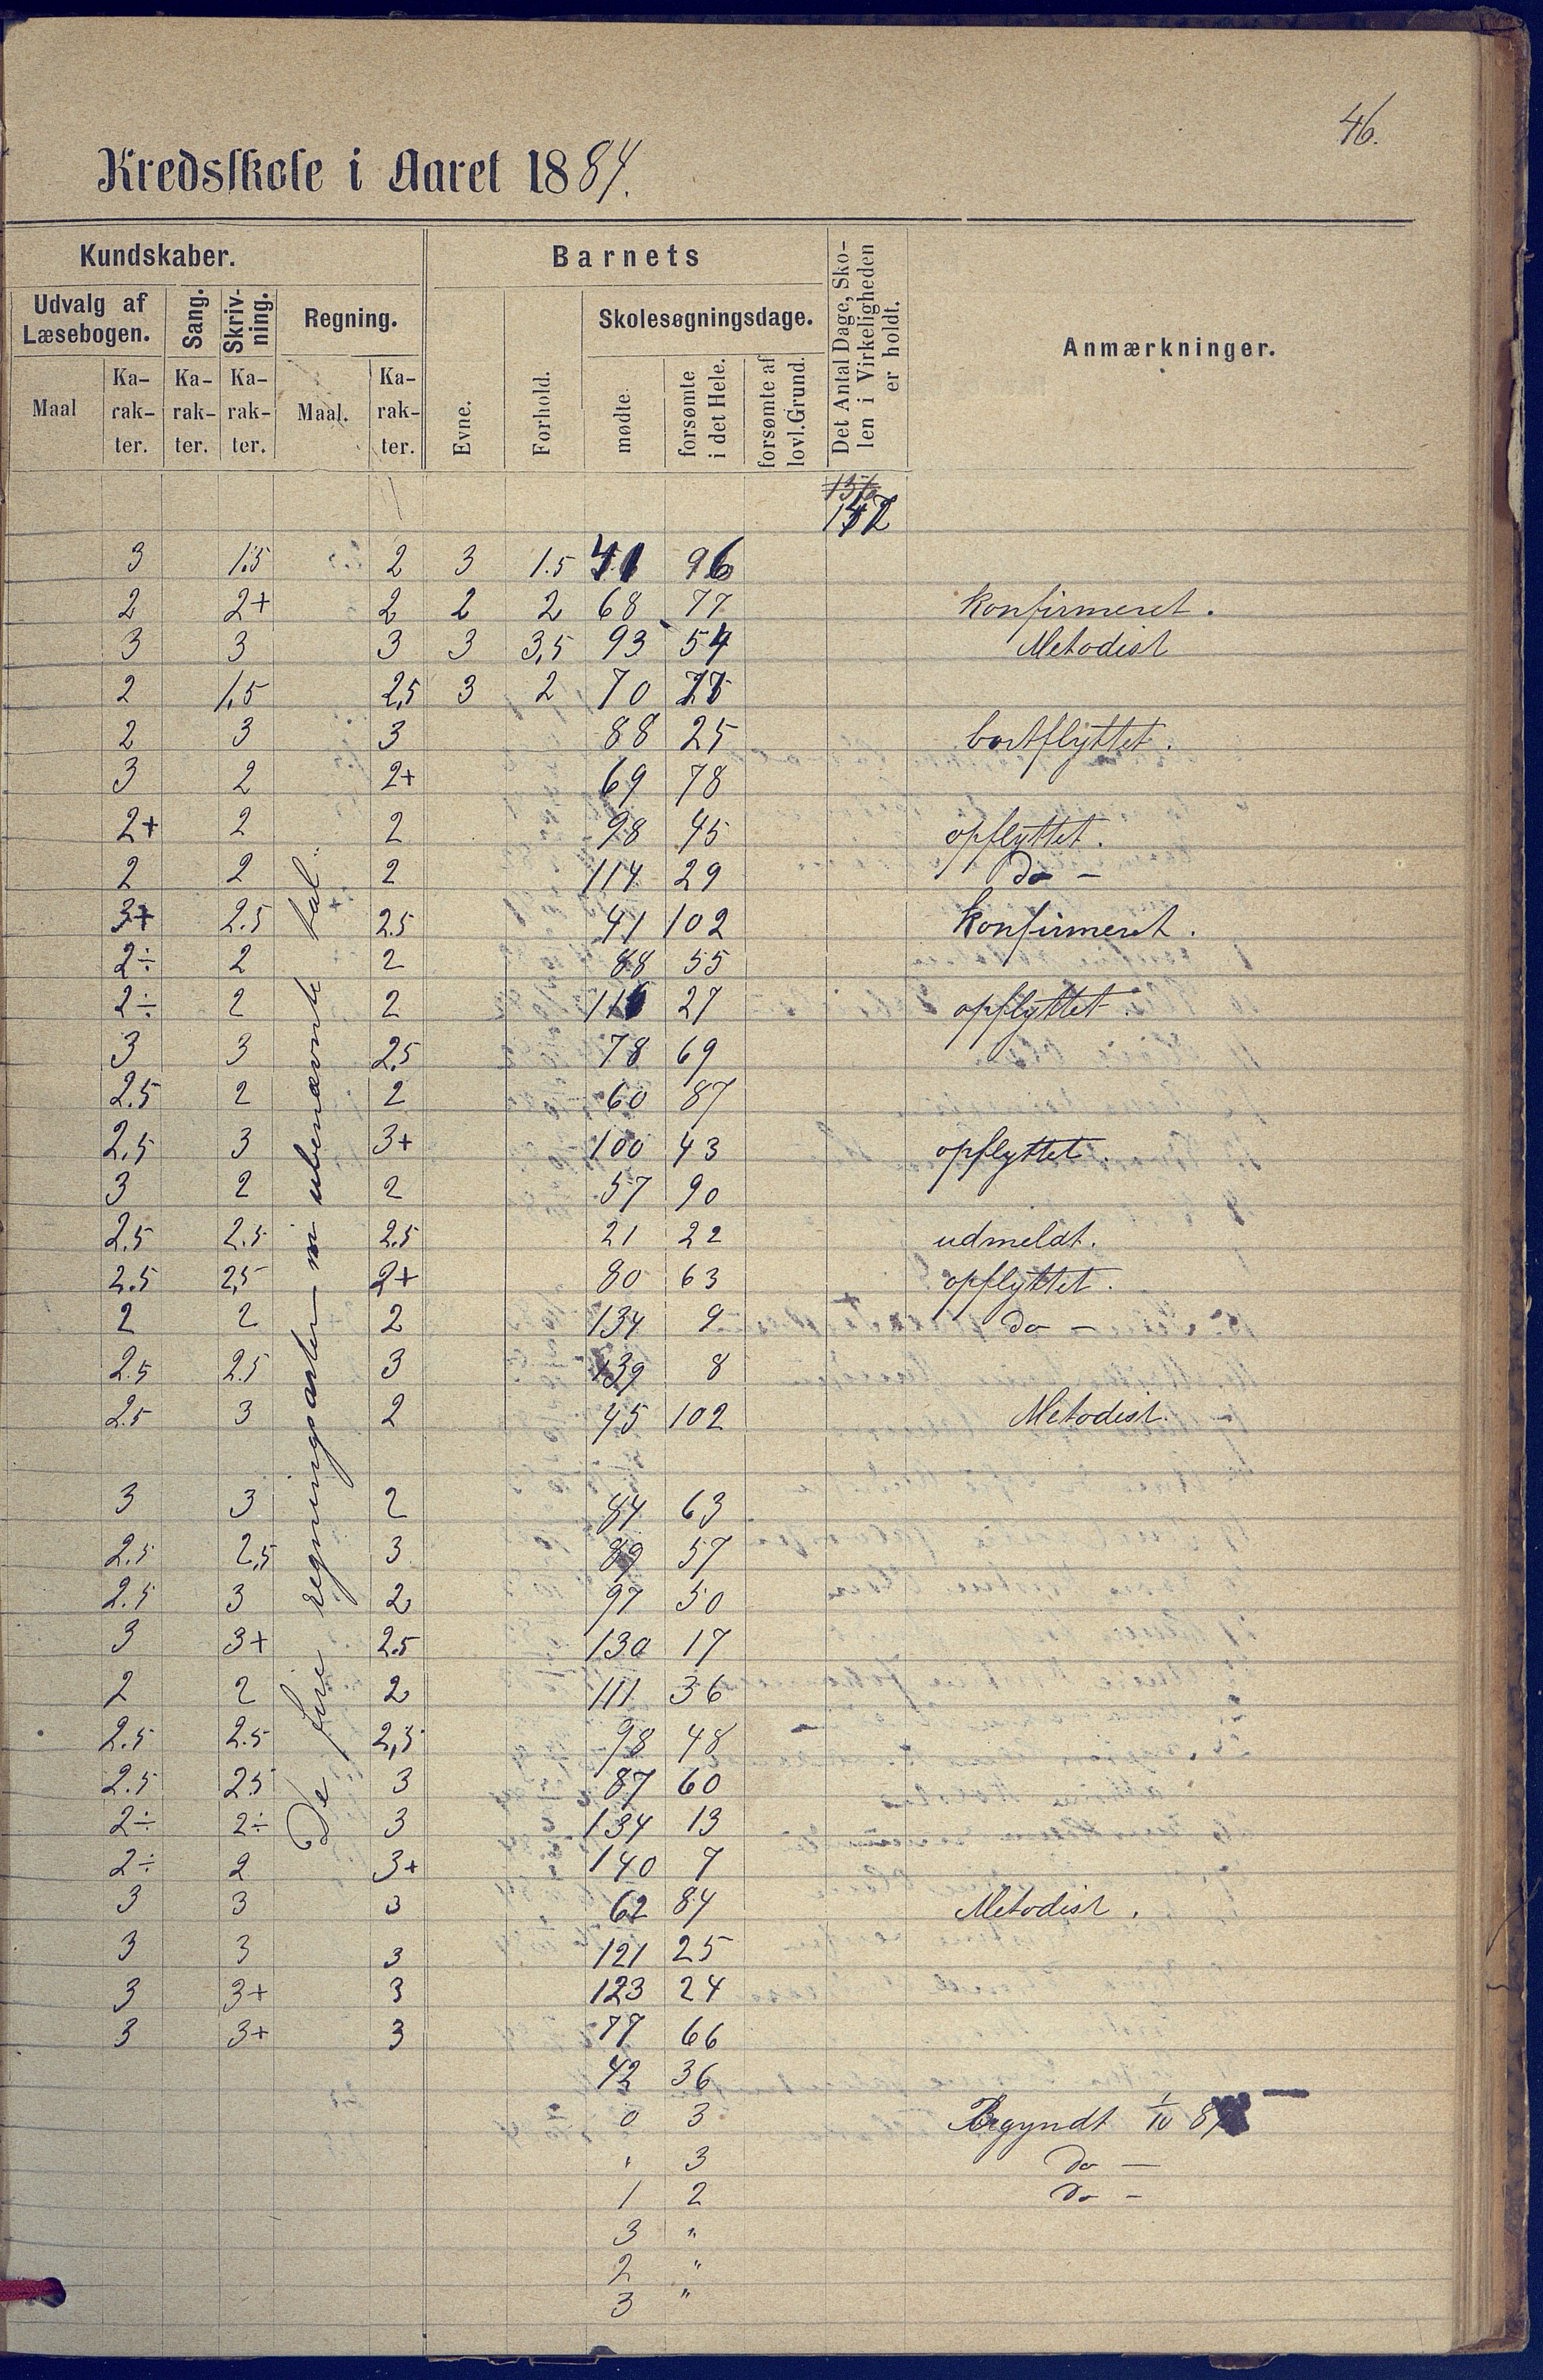 46.
Kredsskole i Aaret 1884.
Kundskaber. Barnets Det Antal Dage, Sko- len i Virkeligheden er holdt. Anmærkninger.
Udvalg af Læsebogen. Sang. Skriv- ning. Regning. Evne. Forhold. Skolesøgningsdage.
Maal Ka- rak- ter. Ka- rak- ter. Ka- rak- ter. Maal. Ka- rak- ter. mødte. forsømte i det Hele. forsømte af lovl. Grund.
147
De fire regningsarter m ubenævnte tal.
3 1.5 2 3 1.5 41 96
2 2+ 2 2 2 68 77 konfirmeret.
3 3 3 3 3,5 93 54 Metodist
2 1,5 2,5 3 2 70 75
2 3 3 88 25 bortflyttet.
3 2 2+ 69 78
2+ 2 2 98 45 opflyttet.
2 2 2 114 29 do -
3+ 2.5 2.5 41 102 konfirmeret.
2÷ 2 2 88 55
2÷ 2 2 116 27 opflyttet.
3 3 2.5 78 69
2.5 2 2 60 87
2.5 3 3+ 100 43 opflyttet.
3 2 2 57 90
2.5 2.5 2.5 21 22 udmeldt.
2.5 2,5 2+ 80 63 opflyttet.
2 2 2 134 9 do -
2.5 2.5 3 139 8
2.5 3 2 45 102 Metodist.
3 3 2 84 63
2.5 2,5 3 89 57
2.5 3 2 97 50
3 3+ 2.5 130 17
2 2 2 111 36
2.5 2.5 2,5 98 48
2.5 2.5 3 87 60
2÷ 2÷ 3 134 13
2÷ 2 3+ 140 7
3 3 3 62 84 Metodist.
3 3 3 121 25
3 3+ 3 123 24
3 3+ 3 77 66
42 36
0 3 Begyndt 1/10 84
" 3 do -
1 2 do -
3 "
2 "
3 "